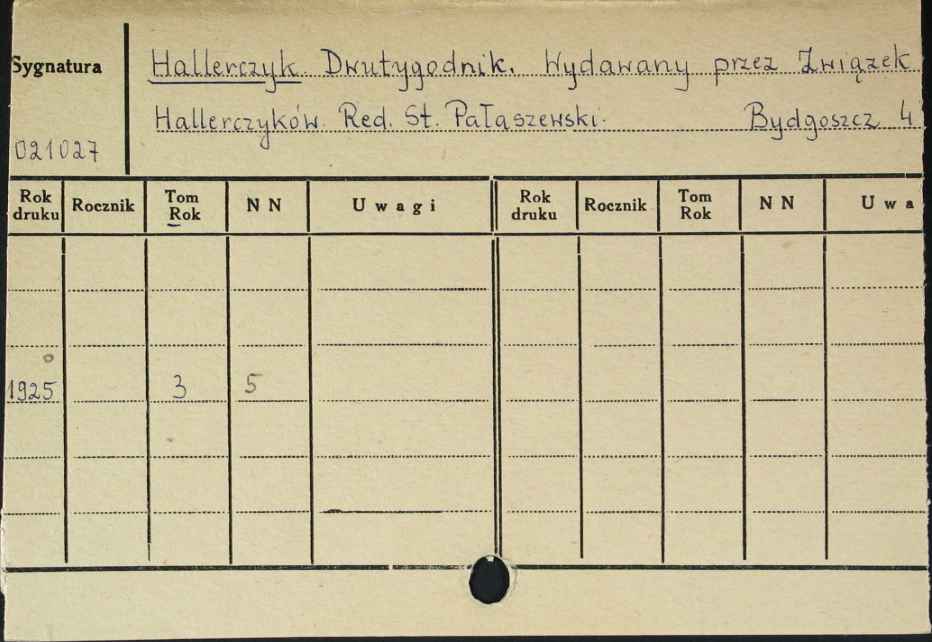 Sygnatura
Hallerczyk. Dwutygodnik. Wydawany przez Związek
Hallerczyków. Red. St. Pałaszewski. Bydgoszcz 4
021027
Rok druku Rocznik Tom Rok N N U w a g i Rok druku Rocznik Tom Rok N N U w a
1925 3 5